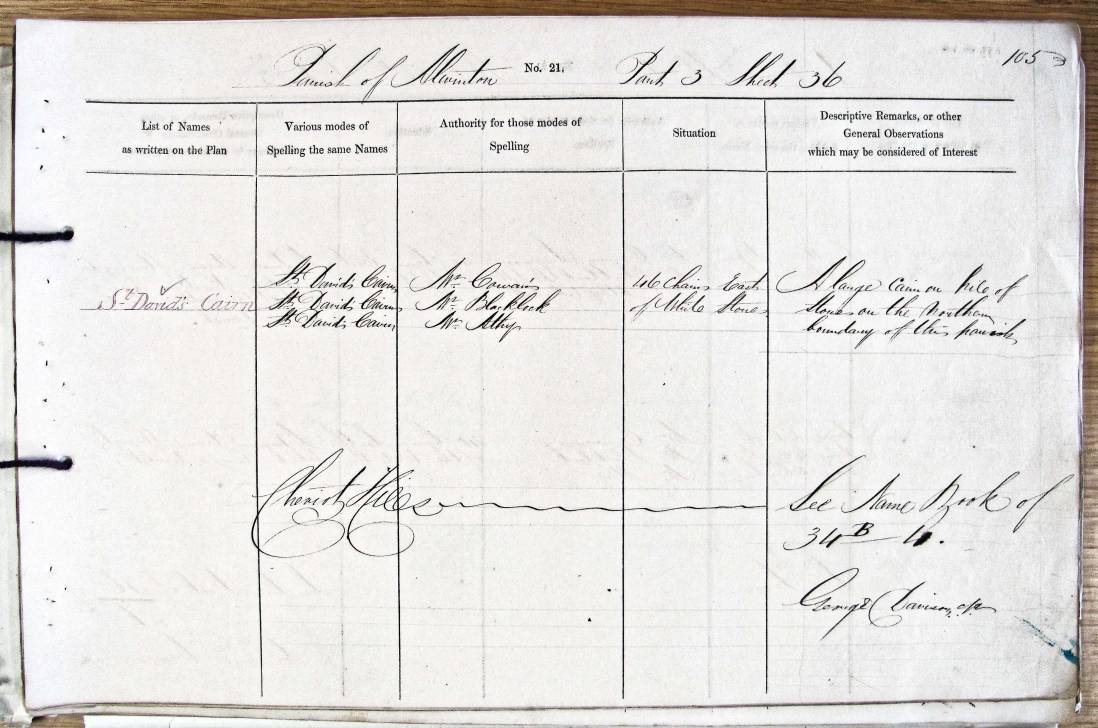 105
Parish of Alwinton No. 21. Part 3 Sheet 36
List of Names
as written on the Plan
Various modes of
Spelling the same Names
Authority for those modes of
Spelling
Situation
Descriptive Remarks, or other
General Observations
which may be considered of Interest
St. David's Cairn
St. Davids Cairn
St. Davids Cairn
St. Davids Cairn
Mr. Cowans
Mr. Blacklock
Mr. Athy
46 Chains East
of White Stones
A large cairn or Pile of
stones on the Northern
boundary of this parish
Cheviot Hills
See Name Book of
34 B 4.
George Davison